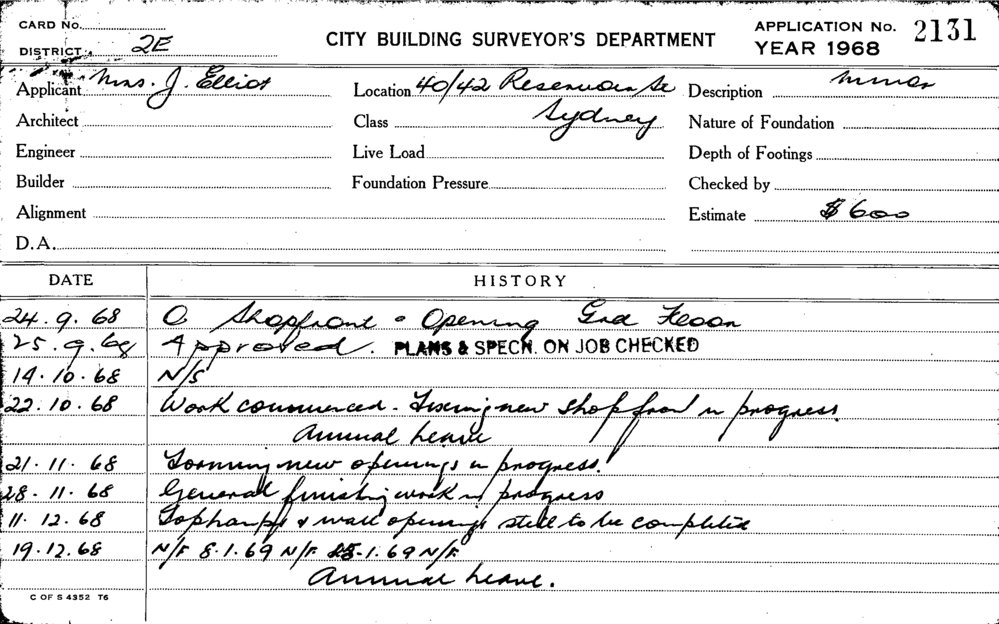 CARD No.
DISTRICT 2E
CITY BUILDING SURVEYOR'S DEPARTMENT
APPLICATION No. 2131
YEAR 1968
Applicant Mrs. J. Elliot
Location 40/42 Reservoir St
Sydney
Description Minor
Architect
Class
Nature of Foundation
Engineer
Live Load
Depth of Footings
Builder
Foundation Pressure
Checked by
Alignment
Estimate $600
D.A.
DATE HISTORY
24.9.68 O Shopfront - Opening Grd Floor
25.9.68 Approved. PLANS & SPECN. ON JOB CHECKED
14.10.68 N/S
22.10.68 Work commenced - Fixing new shop front in progress
Annual Leave
21.11.68 Forming new openings in progress.
28.11.68 General finishing work in progress
11.12.68 & wall openings still to be completed
19.12.68 N/F 8.1.69 N/F 28.1.69 N/F
Annual Leave.
C OF S 4352 T6